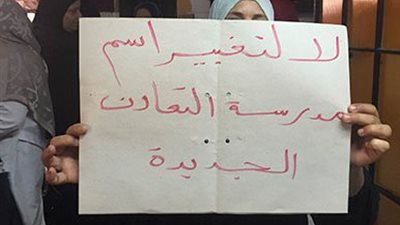 لا لتغيير اسم
مدرسة التعاون
الجديدة